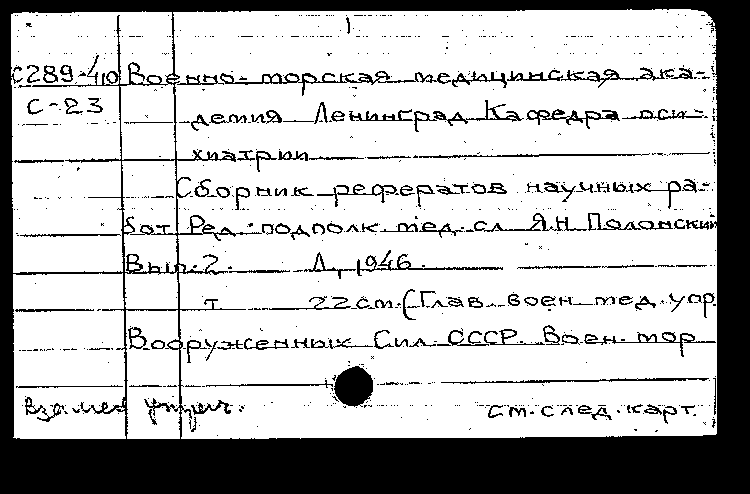 С289-410 Военно-морская медицинская ака-
С-23 демия Ленинград Кафедра пси-
хиатрии
Сборник рефератов научных ра-
бот Ред.: подполк. мед. сл Я.Н Полонский
Вып.2. Л., 1946.
т 22 см. (Глав. воен мед. упр.
Вооруженных Сил СССР. Воен. мор
Взамен утрач. см. след. карт.